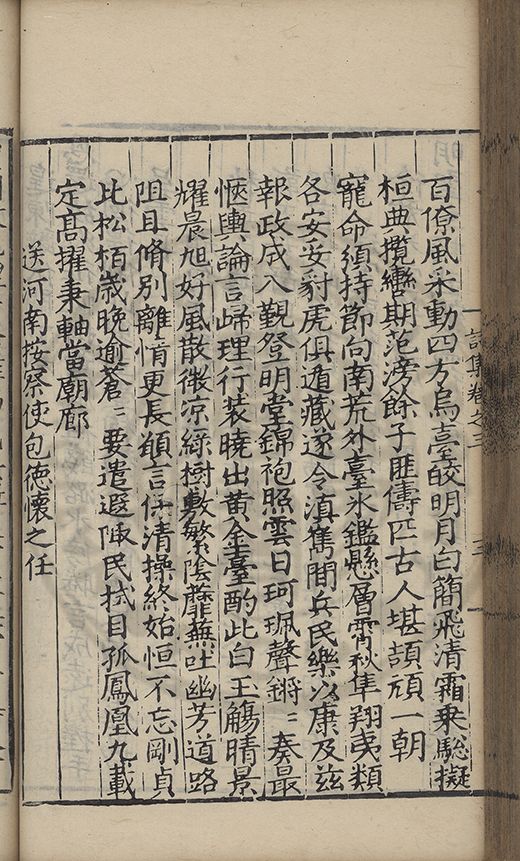 詩集卷之三
百僚風采動四方烏臺皎明月白簡飛清霜乘驄擬
桓典攬轡期范滂餘子匪儔匹古人堪頡頏一朝
寵命須持節向南荒外臺氷鑑懸層霄秋隼翔夷類
各安妥豺虎俱遁藏遂令滇雋間兵民樂以康及茲
報政成入覲登明堂錦袍照雲日珂珮聲鏘〻奏最
愜輿論言歸理行装曉出黄金臺酌此白玉觴晴景
耀晨旭好風散微凉綠樹敷繁陰蘼蕪吐幽芳道路
阻且脩別離情更長願言保清操終始恒不忘剛貞
比松栢歲晚逾蒼〻要遣遐陬民拭目孤鳳凰九載
定髙擢秉軸當廟廊
送河南按察使包德懷之任